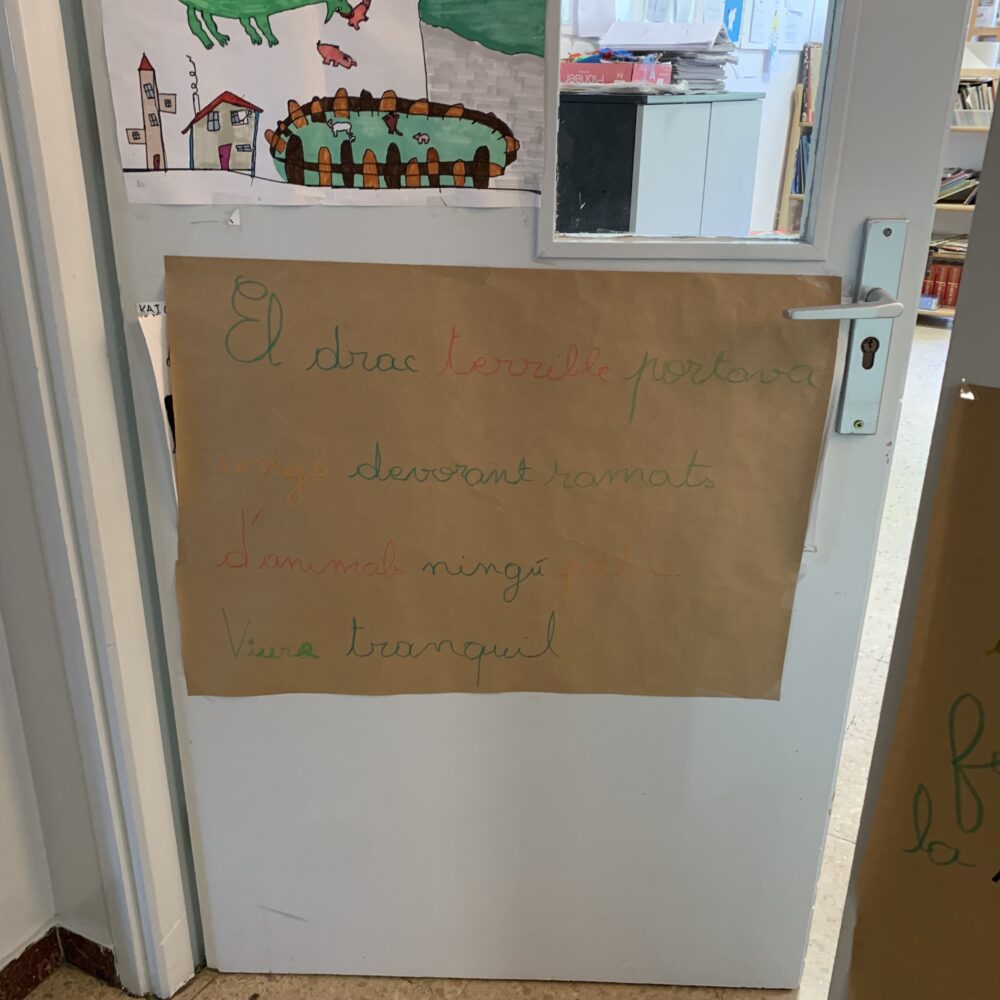 El drac terrible portava
anys devorant ramats
d'animals ningú podia
Viure tranquil
Pioneer
la